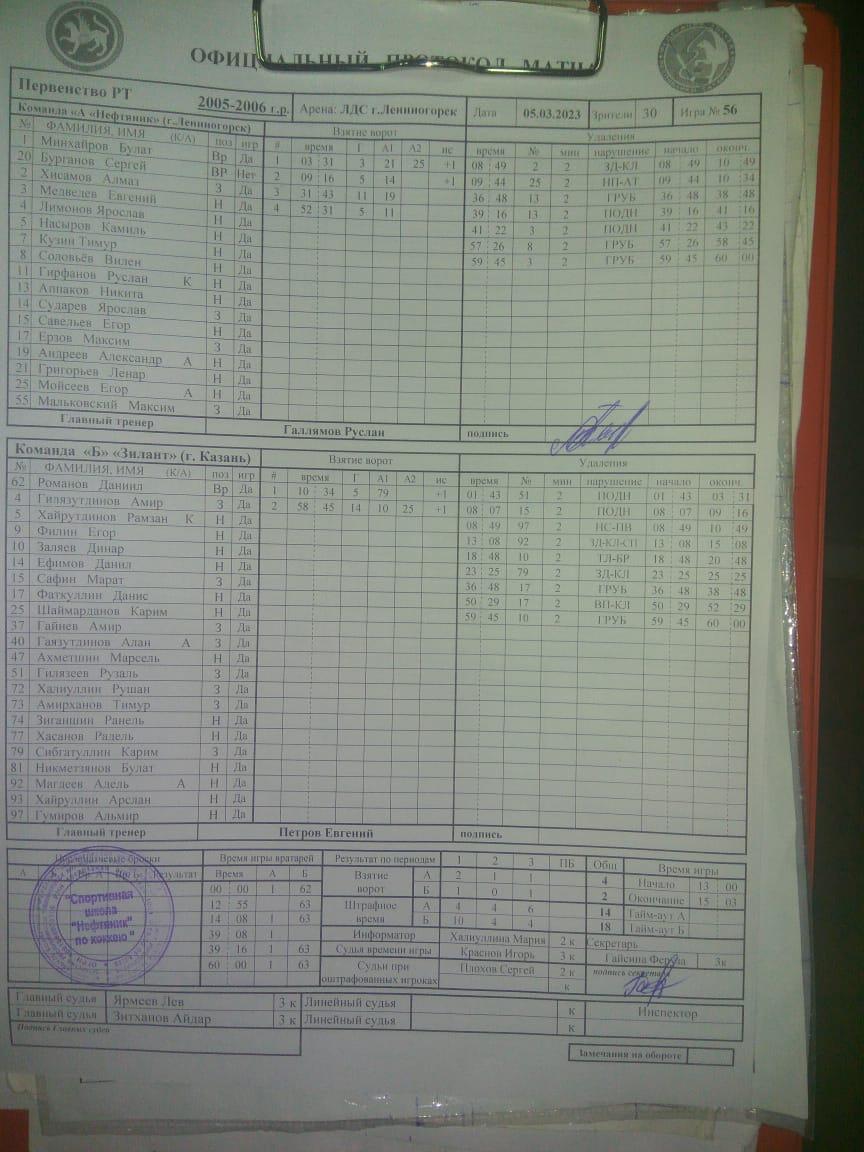 ОФИЦИАЛЬНЫЙ ПРОТОКОЛ МАТЧА
Первенство РТ 2005-2006 г.р. Арена: ЛДС г.Лениногорск Дата 05.03.2023 Зрители 30 Игра № 56
Команда «А «Нефтяник» (г.Лениногорск) Взятие ворот Удаления
№ ФАМИЛИЯ, ИМЯ (К/А) поз игр # время Г А1 А2 ис время № мин нарушение начало оконч.
1 Минхайров Булат Вр Да 1 03 31 3 21 25 +1 08 49 2 2 ЗД-КЛ 08 49 10 49
20 Бурганов Сергей ВР Нет 2 09 16 5 14 +1 09 44 25 2 НП-АТ 09 44 10 34
2 Хисамов Алмаз З Да 3 31 43 11 19 36 48 13 2 ГРУБ 36 48 38 48
3 Медведев Евгений Н Да 4 52 31 5 11 39 16 13 2 ПОДН 39 16 41 16
4 Лимонов Ярослав Н Да 41 22 3 2 ПОДН 41 22 43 22
5 Насыров Камиль Н Да 57 26 8 2 ГРУБ 57 26 58 45
7 Кузин Тимур Н Да 59 45 3 2 ГРУБ 59 45 60 00
8 Соловьёв Вилен Н Да
11 Гирфанов Руслан К Н Да
13 Аппаков Никита Н Да
14 Сударев Ярослав З Да
15 Савельев Егор Н Да
17 Ерзов Максим З Да
19 Андреев Александр А Н Да
21 Григорьев Ленар Н Да
25 Мойсеев Егор А Н Да
55 Мальковский Максим З Да
Главный тренер Галлямов Руслан подпись
Команда «Б» «Зилант» (г. Казань) Взятие ворот Удаления
№ ФАМИЛИЯ, ИМЯ (К/А) поз игр # время Г А1 А2 ис время № мин нарушение начало оконч.
62 Романов Даниил Вр Да 1 10 34 5 79 +1 01 43 51 2 ПОДН 01 43 03 31
4 Гилязутдинов Амир З Да 2 58 45 14 10 25 +1 08 07 15 2 ПОДН 08 07 09 16
5 Хайрутдинов Рамзан К Н Да 08 49 97 2 НС-ПВ 08 49 10 49
9 Филин Егор Н Да 13 08 92 2 ЗД-КЛ-СП 13 08 15 08
10 Заляев Динар Н Да 18 48 10 2 ТЛ-БР 18 48 20 48
14 Ефимов Данил Н Да 23 25 79 2 ЗД-КЛ 23 25 25 25
15 Сафин Марат З Да 36 48 17 2 ГРУБ 36 48 38 48
17 Фаткуллин Данис Н Да 50 29 17 2 ВП-КЛ 50 29 52 29
25 Шаймарданов Карим Н Да 59 45 10 2 ГРУБ 59 45 60 00
37 Гайнев Амир З Да
40 Гаязутдинов Алан А З Да
47 Ахметшин Марсель Н Да
51 Гилязеев Рузаль З Да
72 Халиуллин Рушан З Да
73 Амирханов Тимур З Да
74 Зиганшин Ранель Н Да
77 Хасанов Радель Н Да
79 Сибгатуллин Карим З Да
81 Никметзянов Булат Н Да
92 Магдеев Адель А Н Да
93 Хайруллин Арслан Н Да
97 Гумиров Альмир Н Да
Главный тренер Петров Евгений подпись
Послематчевые броски Время игры вратарей Результат по периодам 1 2 3 ПБ Общ Время игры
А Результат Время А Б Взятие ворот А 2 1 1 4 Начало 13 00
00 00 1 62 Б 1 0 1 2 Окончание 15 03
12 55 63 Штрафное время А 4 4 6 14 Тайм-аут А
14 08 1 63 Б 10 4 4 18 Тайм-аут Б
39 08 1 Информатор Халиуллина Мария 2 к Секретарь
39 16 1 63 Судья времени игры Краснов Игорь 3 к Гайсина Феруза 3к
60 00 1 63 Судьи при оштрафованных игроках Плохов Сергей 2 к подпись секретаря
к
"Спортивная школа "Нефтяник" по хоккею"
Главный судья Ярмеев Лев 3 к Линейный судья к Инспектор
Главный судья Зитханов Айдар 3 к Линейный судья к
Подпись Главных судей
Замечания на обороте